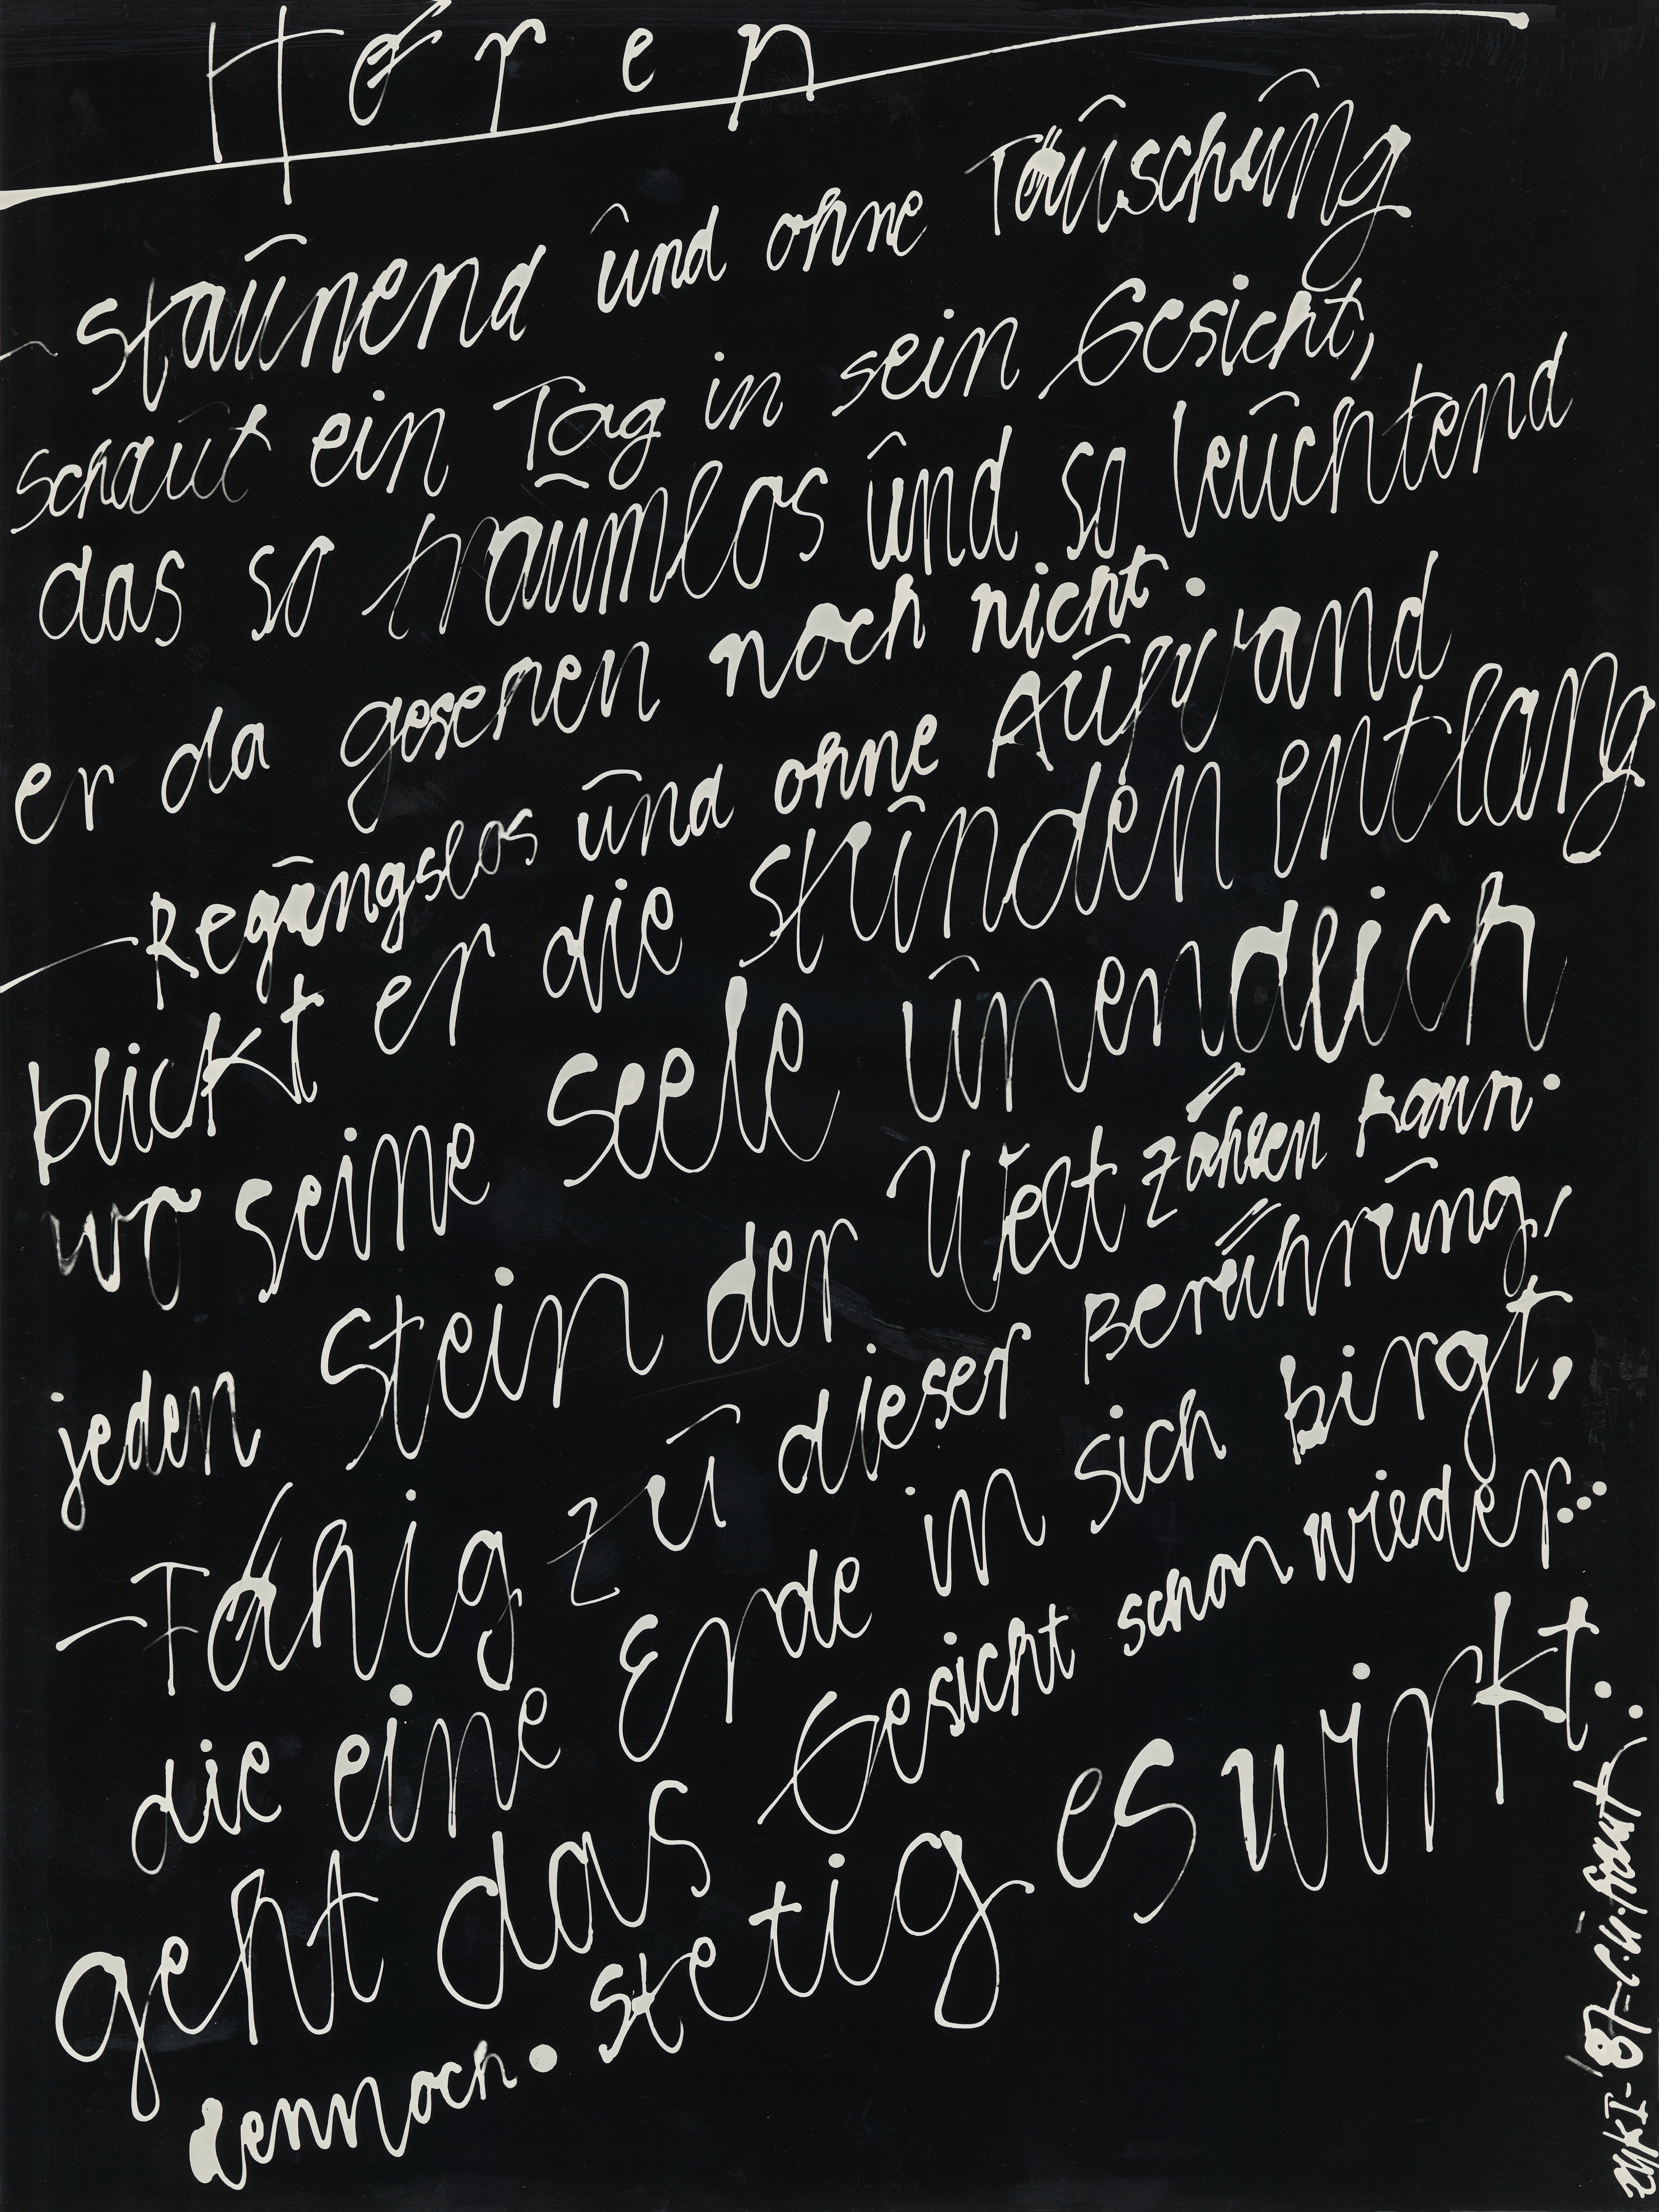 Hören
- staunend und ohne Täuschung
schaut ein Tag in sein Gesicht,
das so traumlos und so leuchtend
er da gesehen noch nicht.
- Regungslos und ohne Aufwand
blickt er die stunden entlang
wo seine Seele unendlich
jeden Stein der Welt zählen kann.
- Fähig zu dieser Berührung,
die eine Erde in sich birgt,
geht das Gesicht schon wieder...
dennoch. stetig es wirkt.
zykI-'87-